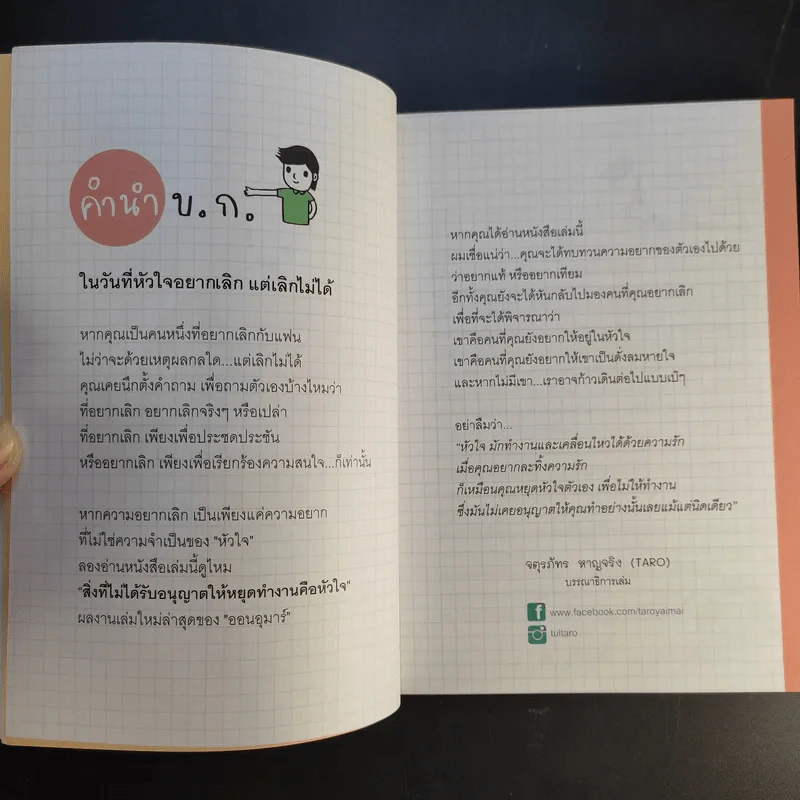 คำนำ บ.ก.
ในวันที่หัวใจอยากเลิก แต่เลิกไม่ได้
หากคุณเป็นคนหนึ่งที่อยากเลิกกับแฟน
ไม่ว่าจะด้วยเหตุผลกลใด...แต่เลิกไม่ได้
คุณเคยนึกตั้งคำถาม เพื่อถามตัวเองบ้างไหมว่า
ที่อยากเลิก อยากเลิกจริงๆ หรือเปล่า
ที่อยากเลิก เพียงเพื่อประชดประชัน
หรืออยากเลิก เพียงเพื่อเรียกร้องความสนใจ...ก็เท่านั้น
หากความอยากเลิก เป็นเพียงแค่ความอยาก
ที่ไม่ใช่ความจำเป็นของ "หัวใจ"
ลองอ่านหนังสือเล่มนี้ดูไหม
"สิ่งที่ไม่ได้รับอนุญาตให้หยุดทำงานคือหัวใจ"
ผลงานเล่มใหม่ล่าสุดของ "ออนอุมาร์"
หากคุณได้อ่านหนังสือเล่มนี้
ผมเชื่อแน่ว่า...คุณจะได้ทบทวนความอยากของตัวเองไปด้วย
ว่าอยากแท้ หรืออยากเทียม
อีกทั้งคุณยังจะได้หันกลับไปมองคนที่คุณอยากเลิก
เพื่อที่จะได้พิจารณาว่า
เขาคือคนที่คุณยังอยากให้อยู่ในหัวใจ
เขาคือคนที่คุณยังอยากให้เขาเป็นดั่งลมหายใจ
และหากไม่มีเขา...เราอาจก้าวเดินต่อไปแบบเป๋ๆ
อย่าลืมว่า...
"หัวใจ มักทำงานและเคลื่อนไหวได้ด้วยความรัก
เมื่อคุณอยากละทิ้งความรัก
ก็เหมือนคุณหยุดหัวใจตัวเอง เพื่อไม่ให้ทำงาน
ซึ่งมันไม่เคยอนุญาตให้คุณทำอย่างนั้นเลยแม้แต่นิดเดียว"
จตุรภัทร หาญจริง (TARO)
บรรณาธิการเล่ม
www.facebook.com/taroyaimai
tultaro